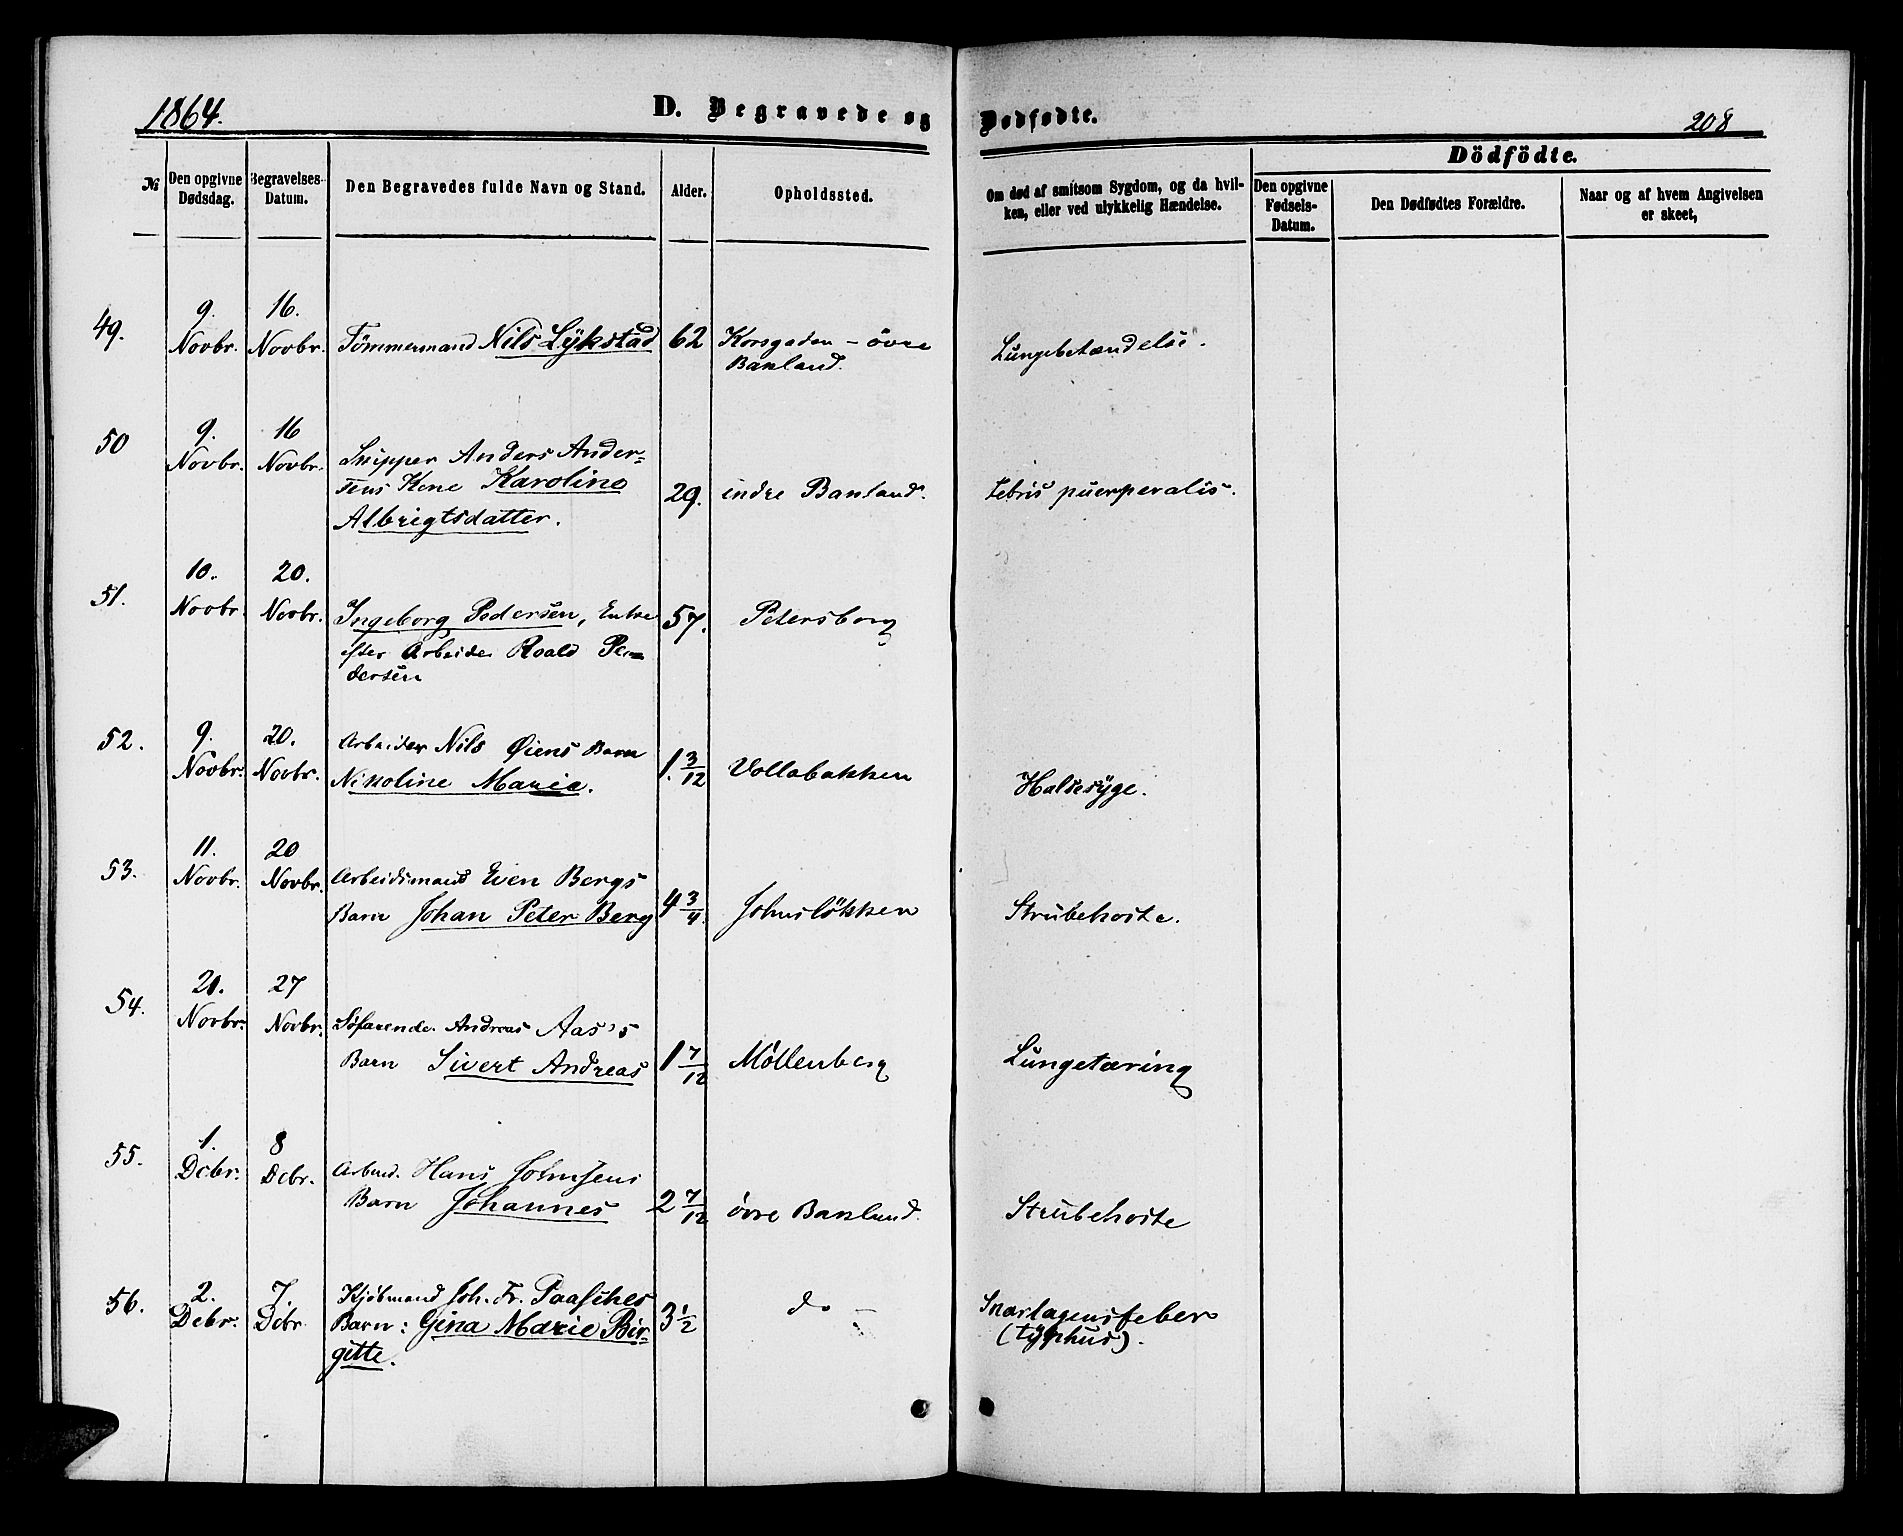 1864.
D. Begravede og
Dødfødte.
208
Dödfödte.
№
Den opgivne Dødsdag.
Begravelses-Datum.
Den Begravedes fulde Navn og Stand.
Alder.
Opholdssted.
Om død af smitsom Sygdom, og da hvil-
ken, eller ved ulykkelig Hændelse.
Den opgivne Fødsels-Datum.
Den Dødfødtes Forældre.
Naar og af hvem Angivelsen
er skeet,
49.
9. Novbr.
16. Novbr.
Tömmermand Nils Lÿkstad
62
Korsgaden – övre
Bakland.
Lungebetændelse.
50
9. Novbr.
16 Novbr.
Skipper Anders Ander-
sens Kone Karoline
Albrigtsdatter.
29.
indre Bakland.
febris puerperalis.
51.
10. Novbr.
20. Novbr.
Ingeborg Pedersen, Enke
efter Arbeider Roald Pe-
dersen
57.
Petersborg
52.
9. Novbr.
20. Novbr.
Arbeider Nils Øiens Barn
Nikoline Marie.
1. 3/12
Vollabakken
Halsesÿge.
53.
11. Novbr.
20 Novbr.
Arbeidsmand Even Bergs
Barn Johan Peter Berg
4 3/4.
Johnslökken
Strubehoste.
54.
21. Novbr.
27 Novbr.
Söfarende Andreas Aas's
Barn Sivert Andreas
1 7/12
Möllenberg
Lungetæring
55.
1. Dcbr.
8 Dcbr.
Arbmd. Hans Johnsens
Barn Johannes
2 7/12
övre Bakland.
Strubehoste
56.
2. Dcbr.
7. Dcbr
Kjöbmand Joh. Fr. Paasches
Barn: Gina Marie Bir-
gitte.
3 1/2
do –
Skarlagensfeber
(tÿphus).